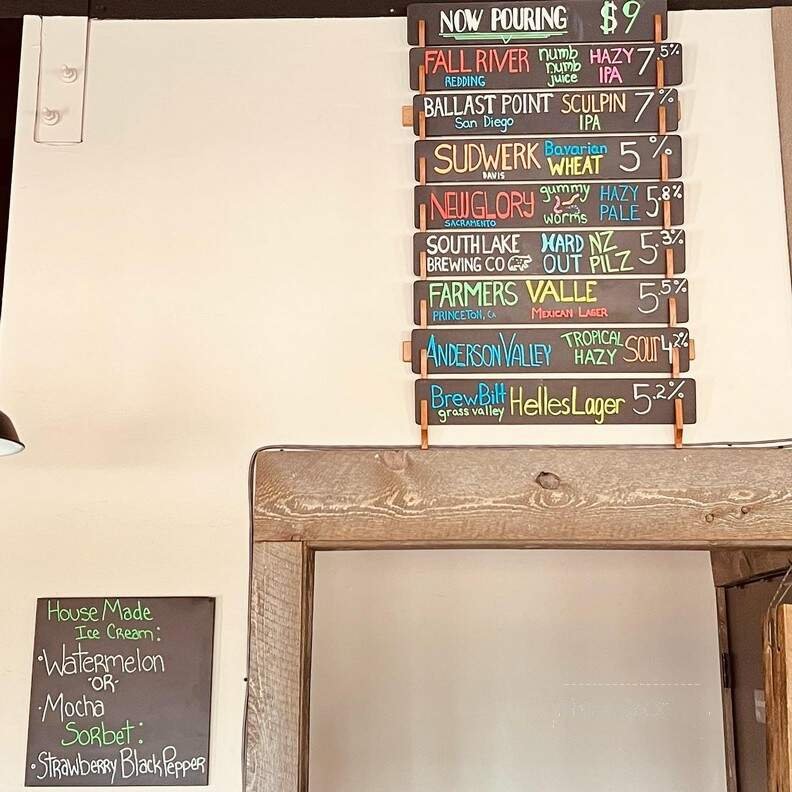 NOW POURING $9
FALL RIVER numb numb juice HAZY IPA 7.5%
REDDING
BALLAST POINT SCULPIN IPA 7%
San Diego
SUDWERK Bavarian WHEAT 5%
DAVIS
NEW GLORY gummy worms HAZY PALE 5.8%
SACRAMENTO
SOUTH LAKE BREWING CO HARD OUT NZ PILZ 5.3%
FARMERS VALLE 5.5%
PRINCETON, CA MEXICAN LAGER
ANDERSON VALLEY TROPICAL HAZY SOUR 4.2%
BrewBilt Helles Lager 5.2%
grass valley
House Made
Ice Cream:
·Watermelon
-OR-
·Mocha
Sorbet:
·Strawberry Black Pepper